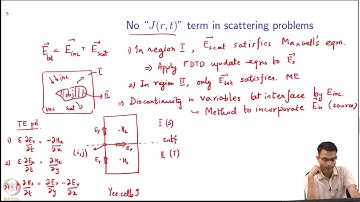 No "J(r,t)" term in scattering problems
E⃗tot = E⃗inc + E⃗scat
1) In region I, E⃗scat satisfies Maxwell's eqn.
⇒ Apply FDTD update eqns to E⃗s
2) In region II, only E⃗tot satisfies ME
⇒ Discontinuity in variables @ interface by E⃗inc
↳ Method to incorporate E⃗in (source)
obj
TE pol
1) ε ∂Ex/∂t = -∂Hz/∂x
2) ε ∂Ex/∂t = ∂Hz/∂y
∂Hz/∂t = ∂Ex/∂y - ∂Ey/∂x
(i,j)
Ey
Ex
Ey
·Hz
·Hz
I (S)
intf
II (T)
Yee cells
NPTEL